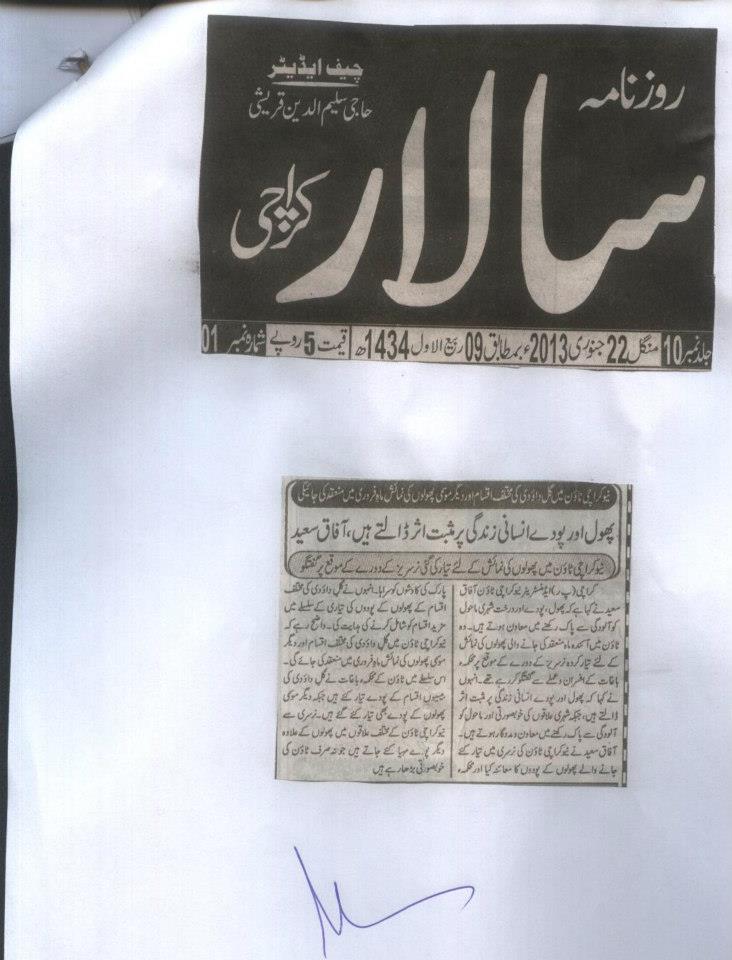 روزنامہ
چیف ایڈیٹر
حاجی سلیم الدین قریشی
سالار
کراچی
جلد نمبر 10 منگل 22 جنوری 2013ء بمطابق 09 ربیع الاول 1434ھ قیمت 5 روپے شمارہ نمبر 01
نیو کراچی ٹاؤن میں گل داؤدی کی مختلف اقسام اور دیگر موسمی پھولوں کی نمائش ماہ فروری میں منعقد کی جائیگی
پھول اور پودے انسانی زندگی پر مثبت اثر ڈالتے ہیں، آفاق سعید
نیو کراچی ٹاؤن میں پھولوں کی نمائش کے لئے تیار کی گئی نرسریز کے دورے کے موقع پر گفتگو
کراچی (پ ر) ایڈمنسٹریٹر نیو کراچی ٹاؤن آفاق
سعید نے کہا ہے کہ پھول، پودے اور درخت شہری ماحول
کو آلودگی سے پاک رکھنے میں معاون ہوتے ہیں۔ وہ
ٹاؤن میں آئندہ ماہ منعقد کی جانے والی پھولوں کی نمائش
کے لئے تیار کردہ نرسریز کے دورے کے موقع پر محکمہ
باغات کے افسران و عملے سے گفتگو کر رہے تھے۔ انہوں
نے کہا کہ پھول اور پودے انسانی زندگی پر مثبت اثر
ڈالتے ہیں، جبکہ شہری علاقوں کی خوبصورتی اور ماحول کو
آلودگی سے پاک رکھنے میں معاون و مددگار ہوتے ہیں۔
آفاق سعید نے نیو کراچی ٹاؤن کی نرسری میں تیار کئے
جانے والے پھولوں کے پودوں کا معائنہ کیا اور محکمہ
پارک کی کاوشوں کو سراہا۔ انہوں نے گل داؤدی کی مختلف
اقسام کے پھولوں کے پودوں کی تیاری کے سلسلے میں
مزید اقسام کو شامل کرنے کی ہدایت کی۔ واضح رہے کہ
نیو کراچی ٹاؤن میں گل داؤدی کی مختلف اقسام اور دیگر
موسمی پھولوں کی نمائش ماہ فروری میں منعقد کی جائے گی۔
اس سلسلے میں ٹاؤن کے محکمہ باغات نے گل داؤدی کی
بیسیوں اقسام کے پودے تیار کئے ہیں جبکہ دیگر موسمی
پھولوں کے پودے بھی تیار کئے گئے ہیں۔ نرسری سے
نیو کراچی ٹاؤن کے مختلف علاقوں میں پھولوں کے علاوہ
دیگر پودے مہیا کئے جاتے ہیں جو نہ صرف ٹاؤن کی
خوبصورتی بڑھا رہے ہیں